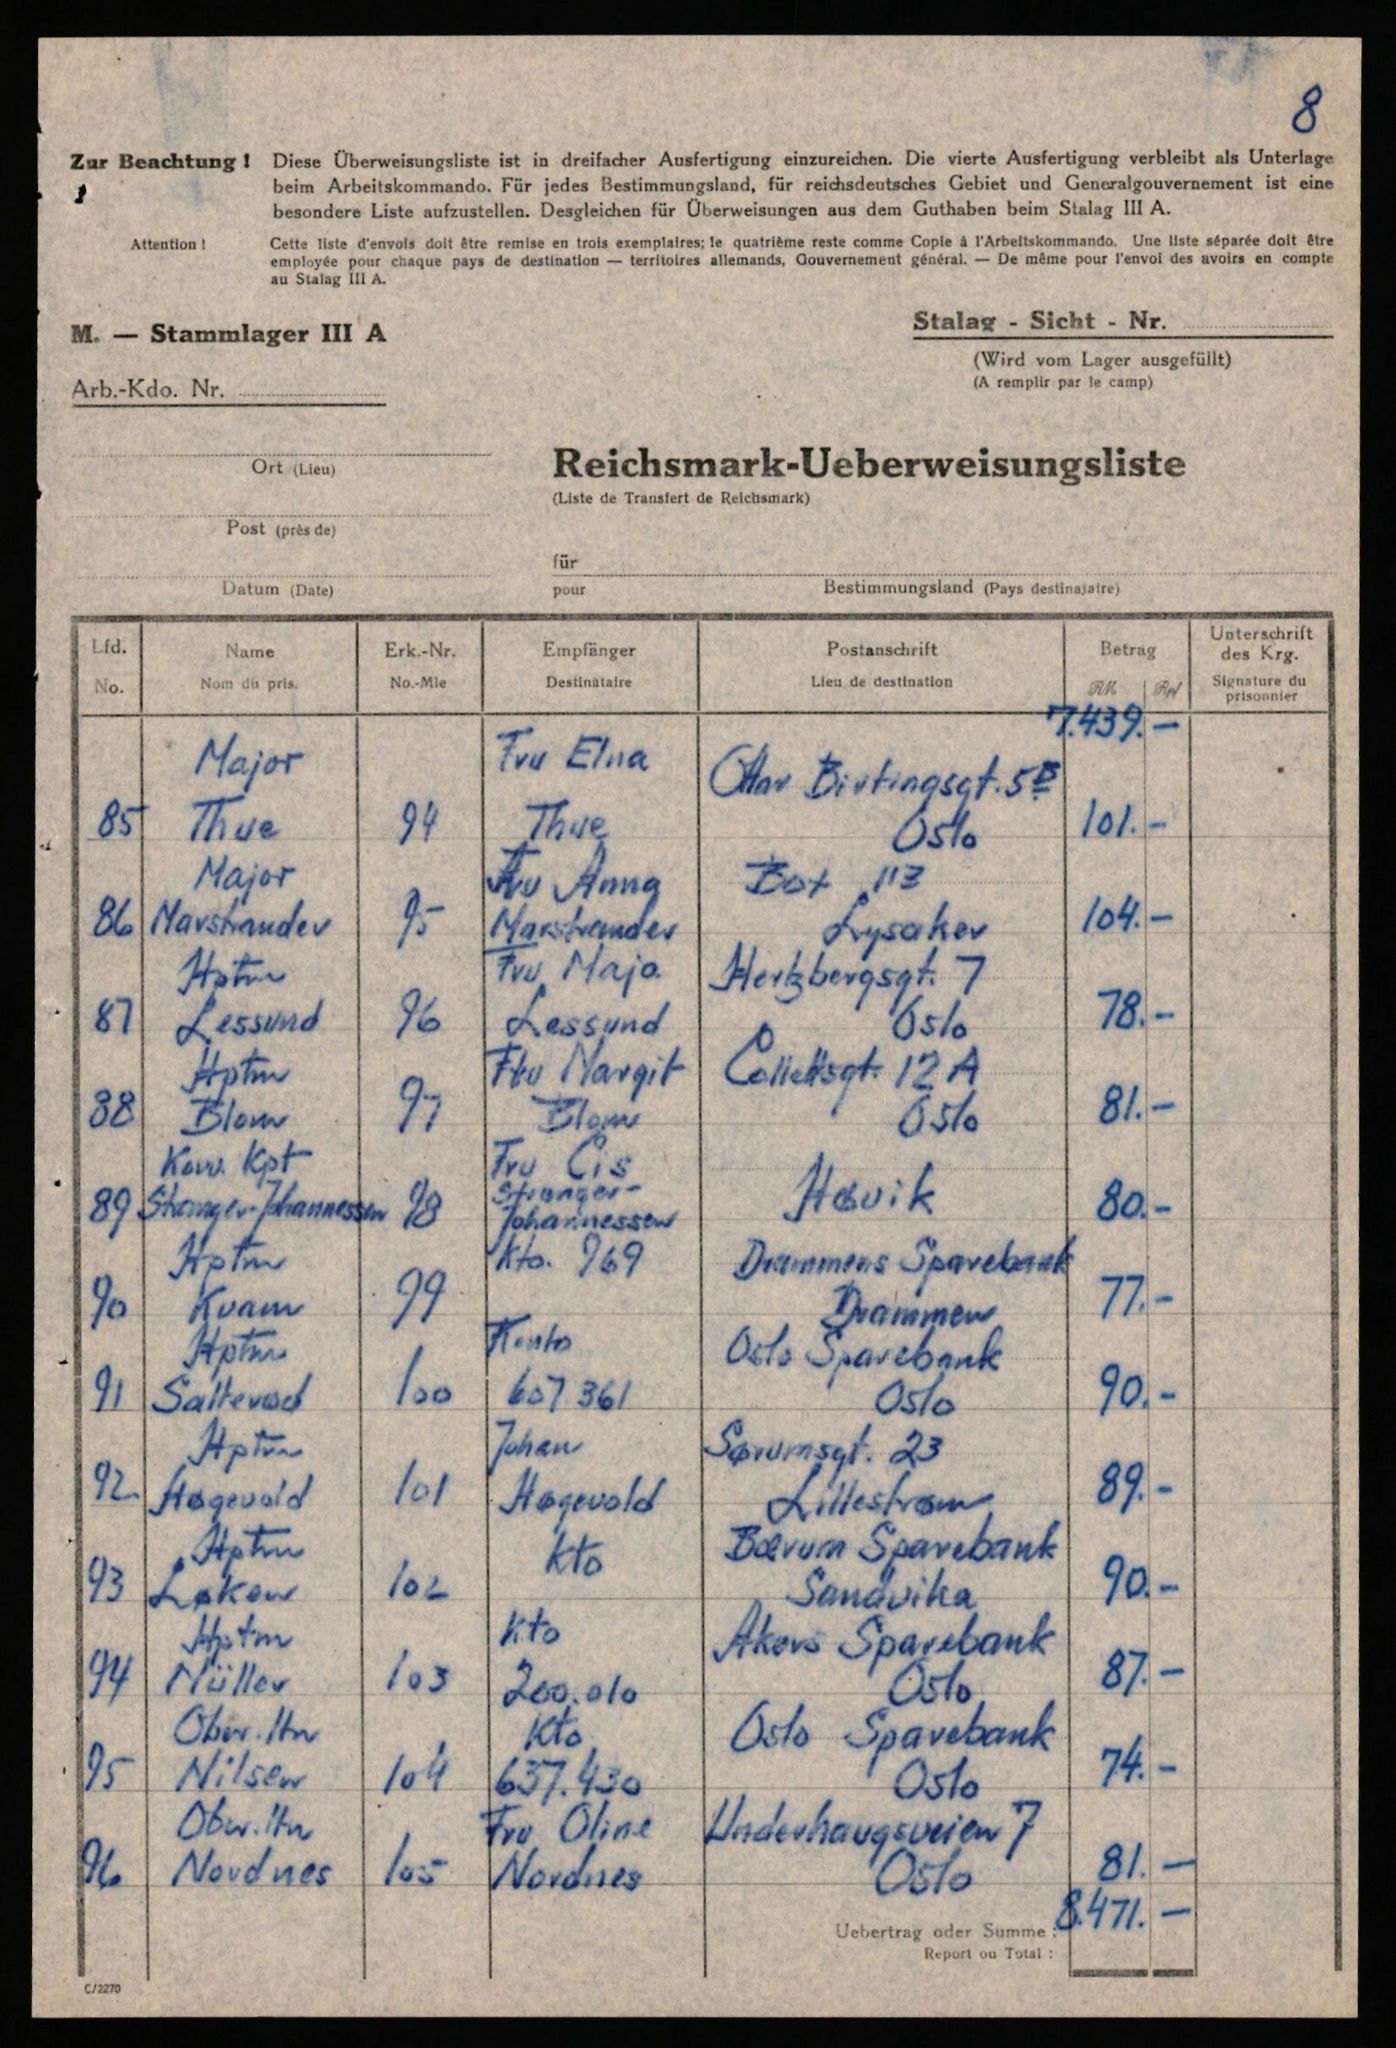 8
Zur Beachtung ! Diese Überweisungsliste ist in dreifacher Ausfertigung einzureichen. Die vierte Ausfertigung verbleibt als Unterlage
beim Arbeitskommando. Für jedes Bestimmungsland, für reichsdeutsches Gebiet und Generalgouvernement ist eine
besondere Liste aufzustellen. Desgleichen für Überweisungen aus dem Guthaben beim Stalag III A.
Attention ! Cette liste d'envois doit être remise en trois exemplaires; le quatrième reste comme Copie à l'Arbeitskommando. Une liste séparée doit être
employée pour chaque pays de destination — territoires allemands, Gouvernement général. — De même pour l'envoi des avoirs en compte
au Stalag III A.
M. — Stammlager III A
Stalag - Sicht - Nr.
(Wird vom Lager ausgefüllt)
(A remplir par le camp)
Arb.-Kdo. Nr.
Ort (Lieu)
Reichsmark-Ueberweisungsliste
(Liste de Transfert de Reichsmark)
Post (près de)
für
Datum (Date)
pour Bestimmungsland (Pays destinataire)
Lfd. Name Erk.-Nr. Empfänger Postanschrift Betrag Unterschrift des Krg.
No. Nom du pris. No.-Mle Destinataire Lieu de destination RM Rpf Signature du prisonnier
7.439.—
Major Fru Elna Ottar Birtingsgt. 5B
85 Thue 94 Thue Oslo 101.-
Major Fru Anna Box 113
86 Marstrander 95 Marstrander Lysaker 104.-
Hptm Fru Maja Hertzbergsgt. 7
87 Lessund 96 Lessund Oslo 78.-
Hptm Fru Margit Collettsgt. 12 A
88 Blom 97 Blom Oslo 81.-
Korv. Kpt Fru Cis
89 Stranger-Johannessen 98 Stranger-Johannessen Høvik 80.-
Hptm Kto. 969 Drammens Sparebank
90 Kvam 99 Drammen 77.-
Hptm Konto Oslo Sparebank
91 Salterød 100 607 361 Oslo 90.-
Hptm Johan Sørumsgt. 23
92. Høgevold 101 Høgevold Lillestrøm 89.-
Hptm Kto Bærum Sparebank
93 Løken 102 Sandvika 90.-
Hptm Kto Akers Sparebank
94 Müller 103 200.010 Oslo 87.—
Ober.ltn Kto Oslo Sparebank
95 Nilsen 104 637.430 Oslo 74.-
Ober.ltn Fru Oline Underhaugsveien 7
96 Nordnes 105 Nordnes Oslo 81.—
Uebertrag oder Summe : 8.471.—
Report ou Total :
C/2270